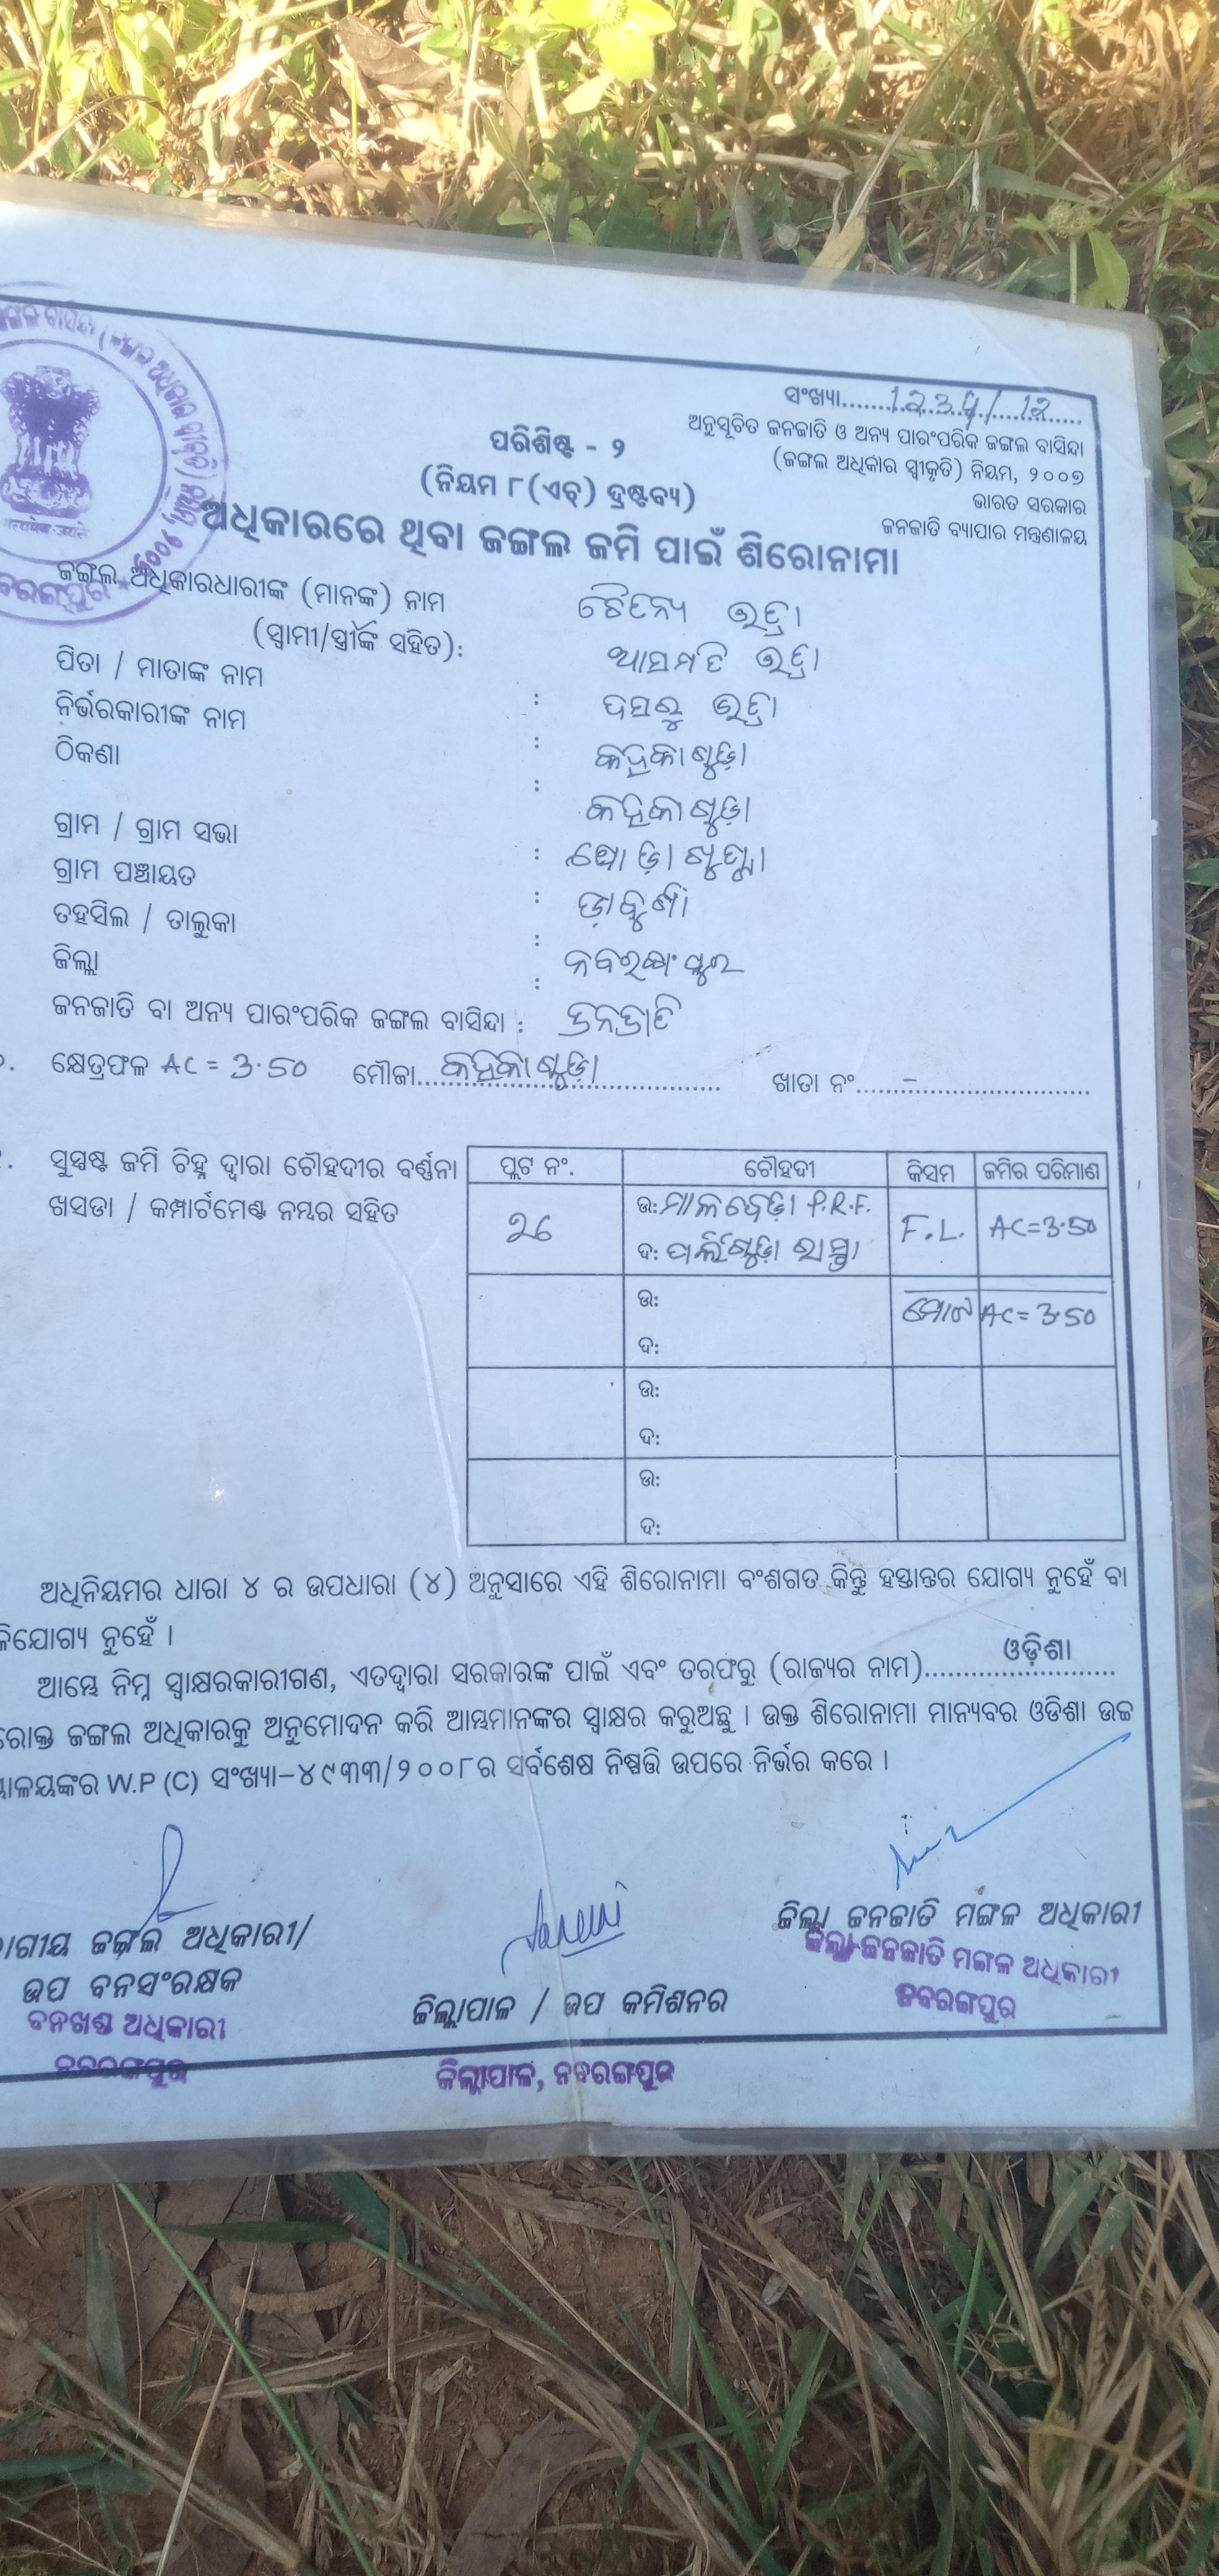 ସଂଖ୍ୟା....1234/12....
ଅନୁସୂଚିତ ଜନଜାତି ଓ ଅନ୍ୟ ପାରଂପରିକ ଜଙ୍ଗଲ ବାସିନ୍ଦା
(ଜଙ୍ଗଲ ଅଧିକାର ସ୍ୱୀକୃତି) ନିୟମ, ୨୦୦୭
ଭାରତ ସରକାର
ଜନଜାତି ବ୍ୟାପାର ମନ୍ତ୍ରଣାଳୟ
ପରିଶିଷ୍ଟ - ୨
(ନିୟମ ୮(ଏଚ୍) ଦ୍ରଷ୍ଟବ୍ୟ)
ଅଧିକାରରେ ଥିବା ଜଙ୍ଗଲ ଜମି ପାଇଁ ଶିରୋନାମା
ଜଙ୍ଗଲ ଅଧିକାରଧାରୀଙ୍କ (ମାନଙ୍କ) ନାମ ଚୈତନ୍ୟ ଭତ୍ରା
(ସ୍ୱାମୀ/ସ୍ତ୍ରୀଙ୍କ ସହିତ): ଆସମତି ଭତ୍ରା
ପିତା / ମାତାଙ୍କ ନାମ : ଦସରୁ ଭତ୍ରା
ନିର୍ଭରକାରୀଙ୍କ ନାମ :
ଠିକଣା : କହକାଗୁଡ଼ା
ଗ୍ରାମ / ଗ୍ରାମ ସଭା : କହକାଗୁଡ଼ା
ଗ୍ରାମ ପଞ୍ଚାୟତ :
ତହସିଲ / ତାଲୁକା : ଡ଼ାବୁଗାଁ
ଜିଲ୍ଲା : ନବରଙ୍ଗପୁର
ଜନଜାତି ବା ଅନ୍ୟ ପାରଂପରିକ ଜଙ୍ଗଲ ବାସିନ୍ଦା : ଜନଜାତି
କ୍ଷେତ୍ରଫଳ AC = 3.50 ମୌଜା....କହକାଗୁଡ଼ା.... ଖାତା ନଂ....–....
ସୁସ୍ପଷ୍ଟ ଜମି ଚିହ୍ନ ଦ୍ୱାରା ଚୌହଦୀର ବର୍ଣ୍ଣନା
ଖସଡା / କମ୍ପାର୍ଟମେଣ୍ଟ ନମ୍ବର ସହିତ
ପ୍ଲଟ ନଂ. ଚୌହଦୀ କିସମ ଜମିର ପରିମାଣ
26 ଉ: ମାଳବେଡ଼ା P.R.F. F.L. AC=3.50
ଦ: ରାସ୍ତା
ଉ: ମୋଟ AC= 3.50
ଦ:
ଉ:
ଦ:
ଉ:
ଦ:
ଅଧିନିୟମର ଧାରା ୪ ର ଉପଧାରା (୪) ଅନୁସାରେ ଏହି ଶିରୋନାମା ବଂଶଗତ କିନ୍ତୁ ହସ୍ତାନ୍ତର ଯୋଗ୍ୟ ନୁହେଁ ବା
ନୁହେଁ ।
ଆମ୍ଭେ ନିମ୍ନ ସ୍ୱାକ୍ଷରକାରୀଗଣ, ଏତଦ୍ୱାରା ସରକାରଙ୍କ ପାଇଁ ଏବଂ ତରଫରୁ (ରାଜ୍ୟର ନାମ)....ଓଡ଼ିଶା....
ଜଙ୍ଗଲ ଅଧିକାରକୁ ଅନୁମୋଦନ କରି ଆମ୍ଭମାନଙ୍କର ସ୍ୱାକ୍ଷର କରୁଅଛୁ । ଉକ୍ତ ଶିରୋନାମା ମାନ୍ୟବର ଓଡିଶା ଉଚ୍ଚ
W.P (C) ସଂଖ୍ୟା-୪୯୩୩/୨୦୦୮ର ସର୍ବଶେଷ ନିଷ୍ପତ୍ତି ଉପରେ ନିର୍ଭର କରେ ।
ଜଙ୍ଗଲ ଅଧିକାରୀ/
ଉପ ବନସଂରକ୍ଷକ
ବନଖଣ୍ଡ ଅଧିକାରୀ
ନବରଙ୍ଗପୁର
ଜିଲ୍ଲାପାଳ / ଉପ କମିଶନର
ଜିଲ୍ଲାପାଳ, ନବରଙ୍ଗପୁର
ଜିଲ୍ଲା ଜନଜାତି ମଙ୍ଗଳ ଅଧିକାରୀ
ଜିଲ୍ଲା ଜନଜାତି ମଙ୍ଗଳ ଅଧିକାରୀ
ନବରଙ୍ଗପୁର